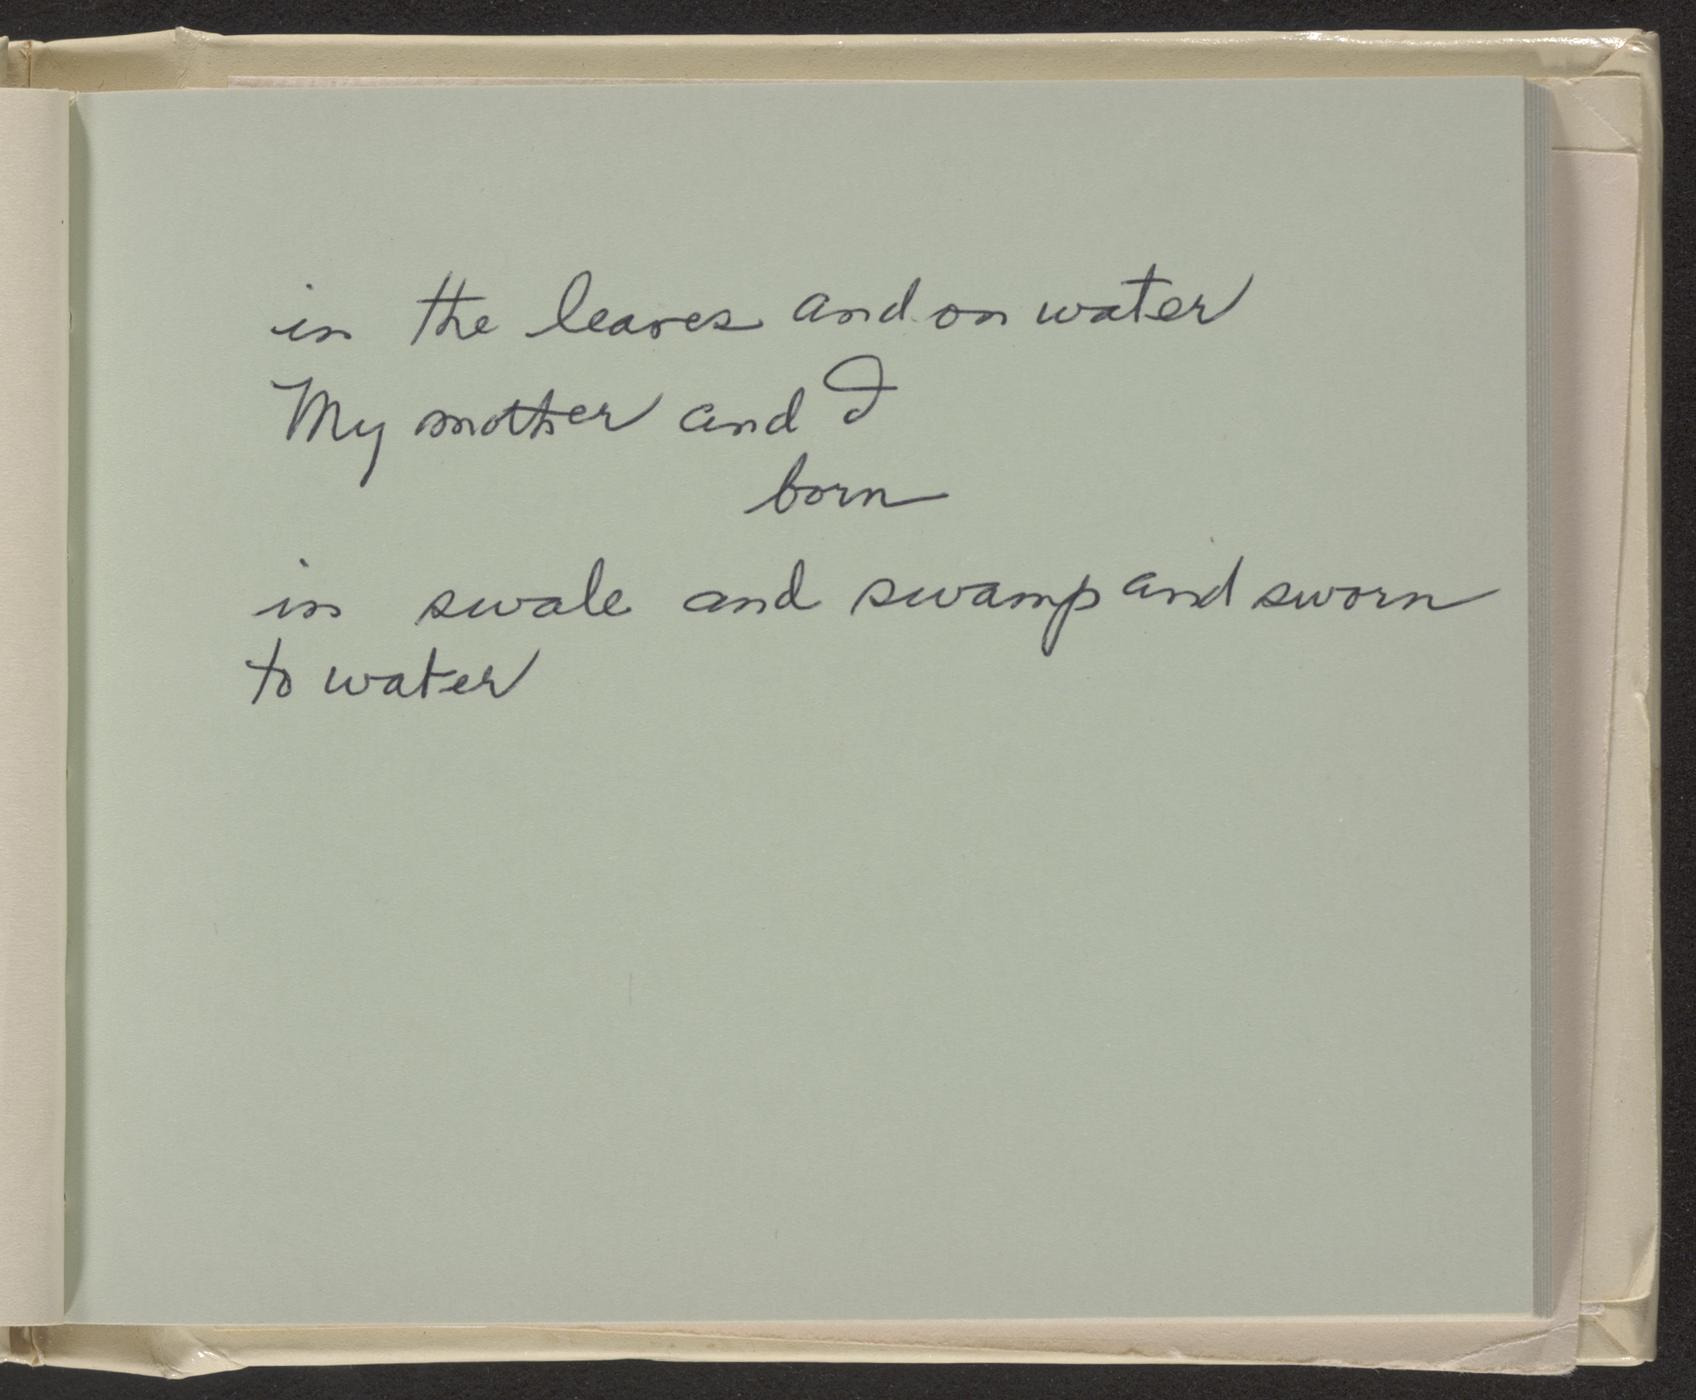 in the leaves and on water
My mother and I
born
in swale and swamp and sworn
to water